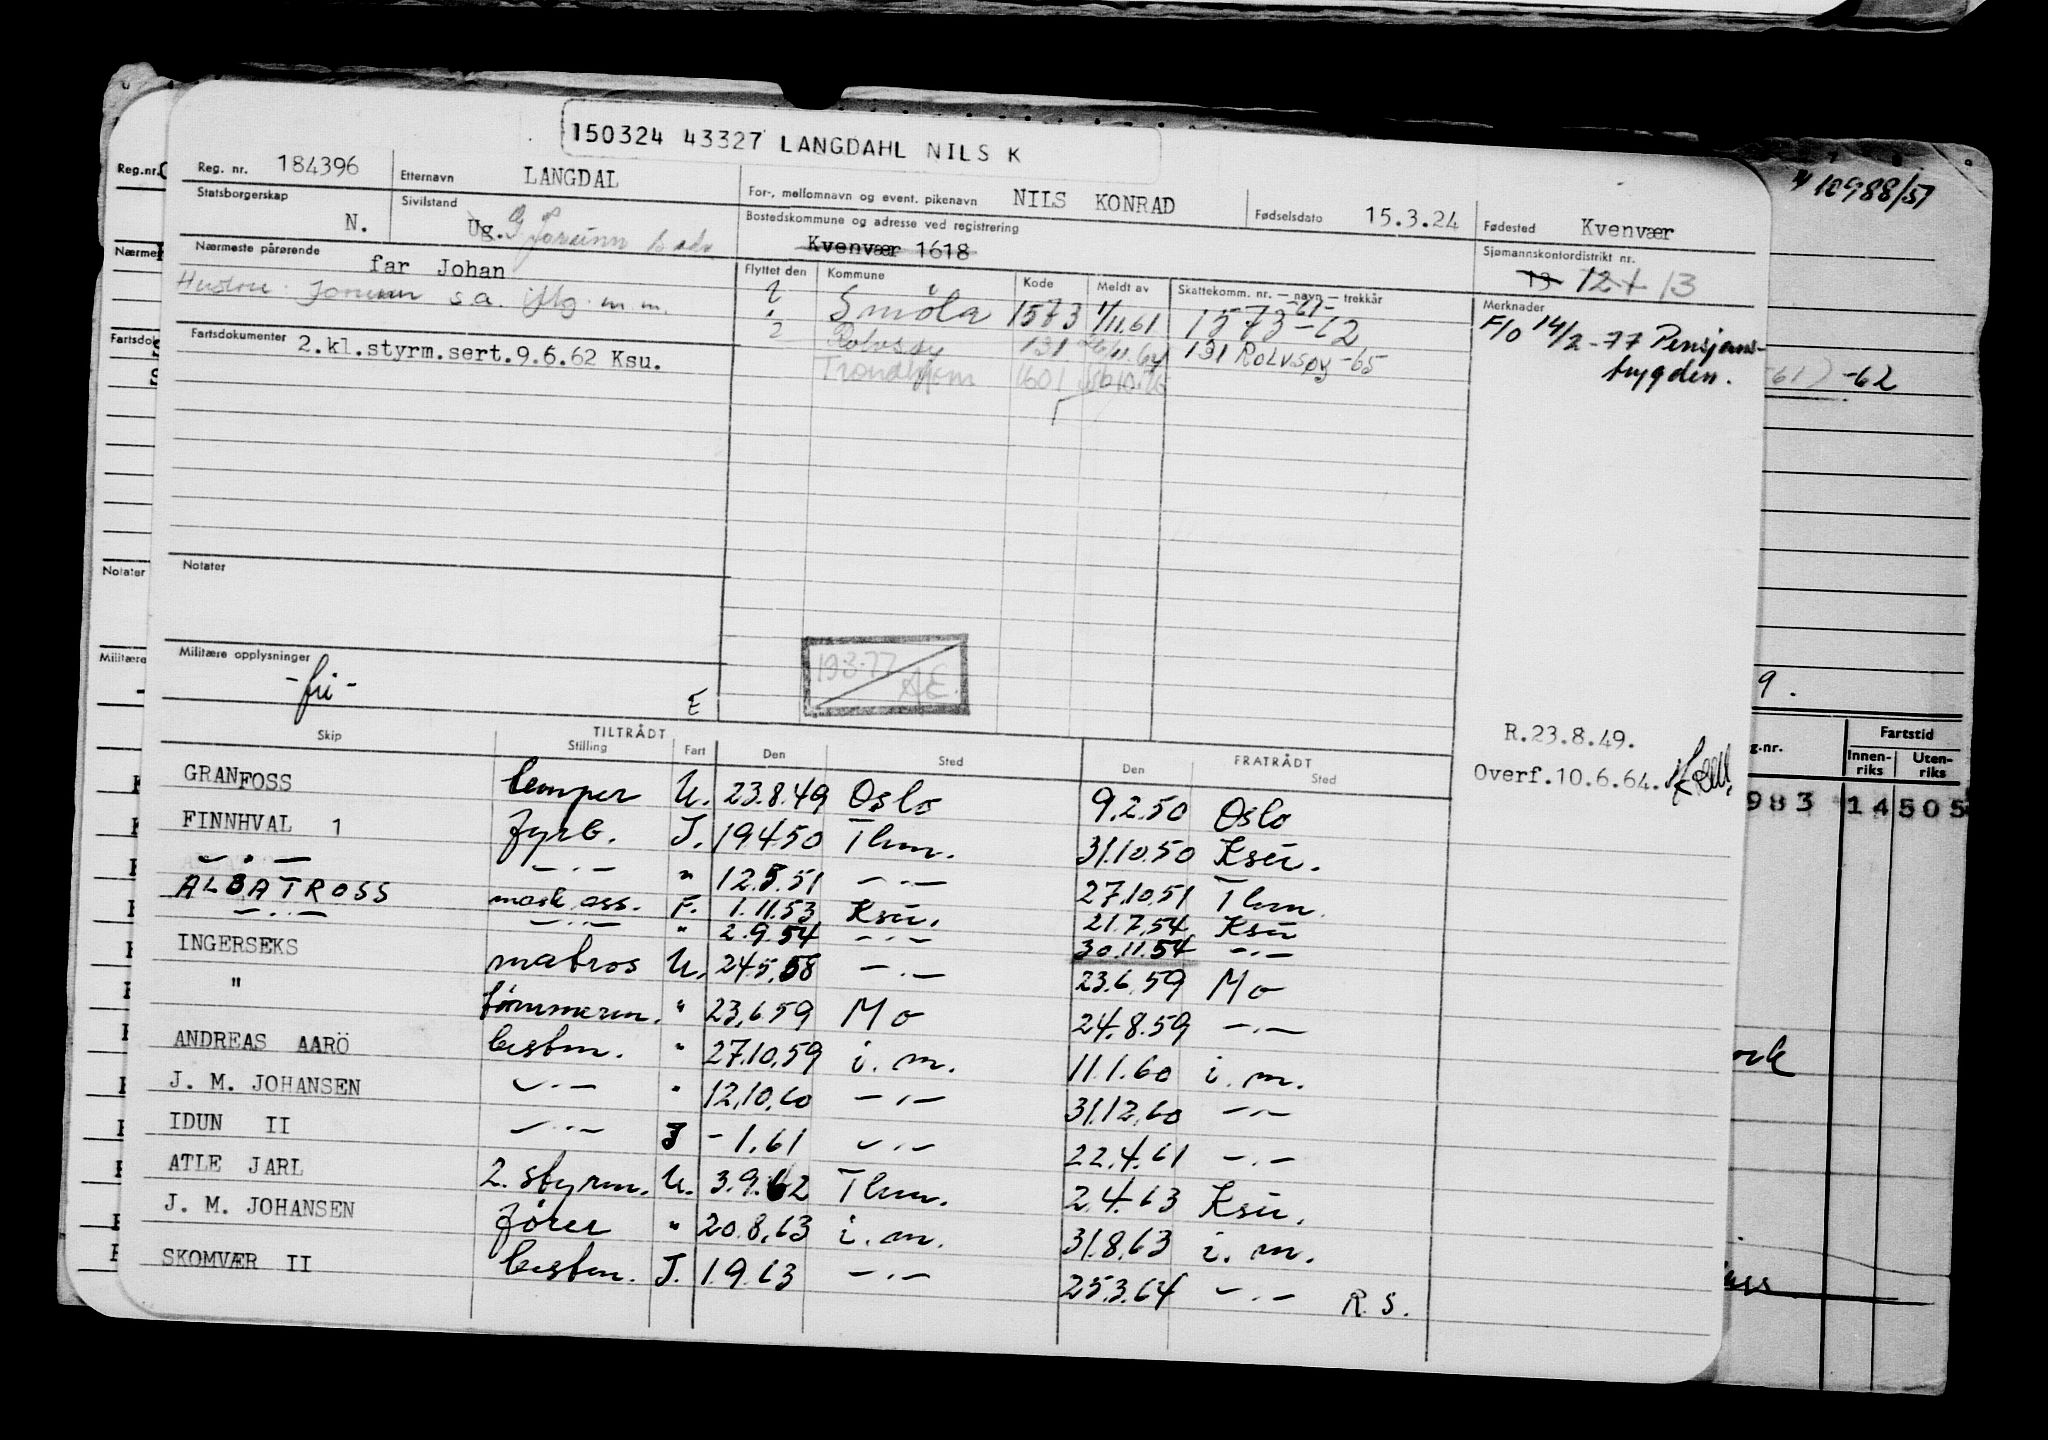 150324 43327 LANGDAHL NILS K
Reg. nr. 184396 Etternavn LANGDAL For-, mellomnavn og event. pikenavn NILS KONRAD Fødselsdato 15.3.24 Fødested Kvenvær
Statsborgerskap N. Sivilstand Ug. G Jorunn Bostedskommune og adresse ved registrering Kvenvær 1618 Sjømannskontordistrikt nr. 13 12 + 13
Nærmeste pårørende far Johan Flyttet den Kommune Kode Meldt av Skattekomm. nr. — navn — trekkår Merknader
Hustru Jorunn s.a. iflg. m.m. ? Smöla 1573 1/11.61 1573 -61- -62 F/O 14/2 -77 Pensjons-
Fartsdokumenter 2.kl.styrm.sert.9.6.62 Ksu. ? Rolvsøy 131 26/11.64 131 Rolvsøy -65 trygden.
Trondhjem 1601
Notater
Militære opplysninger
-fri- E
19.3.77 AE.
R.23.8.49.
Overf.10.6.64.
Skip TILTRÅDT Stilling Fart Den Sted FRATRÅDT Den Sted
GRANFOSS lemper U. 23.8.49 Oslo 9.2.50 Oslo
FINNHVAL 1 fyrb. I. 19450 Thm. 31.10.50 Ksu.
—·— —·— " 12.5.51 —·— 27.10.51 Thm.
ALBATROSS mask.ass. F. 1.11.53 Ksu. 21.7.54 Ksu
—·— —·— " 2.9.54 —·— 30.11.54 —·—
INGERSEKS matros U. 24.5.58 —·— 23.6.59 Mo
" tømmerm. " 23.6.59 Mo 24.8.59 —·—
ANDREAS AARÖ bestm. " 27.10.59 i. m. 11.1.60 i. m.
J. M. JOHANSEN —·— " 12.10.60 —·— 31.12.60 —·—
IDUN II —·— I -1.61 —·— 22.4.61 —·—
ATLE JARL 2. styrm. U. 3.9.62 Thm. 2.4.63 Ksu.
J. M. JOHANSEN fører " 20.8.63 i. m. 31.8.63 i. m.
SKOMVÆR II bestm. I. 1.9.63 —·— 25.3.64 —·— R. S.
Reg.nr.
Nærme
Fartsdok
Notater
Militære
10988/51
-61) -62
9.
g.nr. Fartstid
Innen-riks Uten-riks
983 14 505